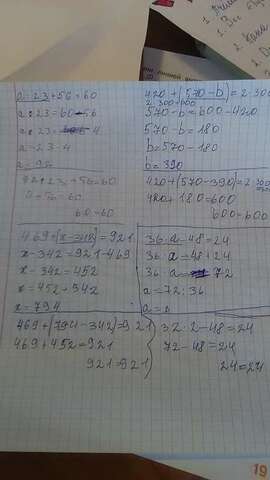 a : 23 + 56 = 60
a : 23 = 60 - 56
a : 23 = 4
a = 23 · 4
a = 92
92 : 23 + 56 = 60
4 + 56 = 60
60 = 60
420 + (570 - b) = 2 · 300
2 · 300 = 600
570 - b = 600 - 420
570 - b = 180
b = 570 - 180
b = 390
420 + (570 - 390) = 2 · 300
420 + 180 = 600
600 = 600
469 + (x - 342) = 921
x - 342 = 921 - 469
x - 342 = 452
x = 452 + 342
x = 794
469 + (794 - 342) = 921
469 + 452 = 921
921 = 921
36 · a - 48 = 24
36 · a = 48 + 24
36 · a = 72
a = 72 : 36
a = 2
32 · 2 - 48 = 24
72 - 48 = 24
24 = 24
19